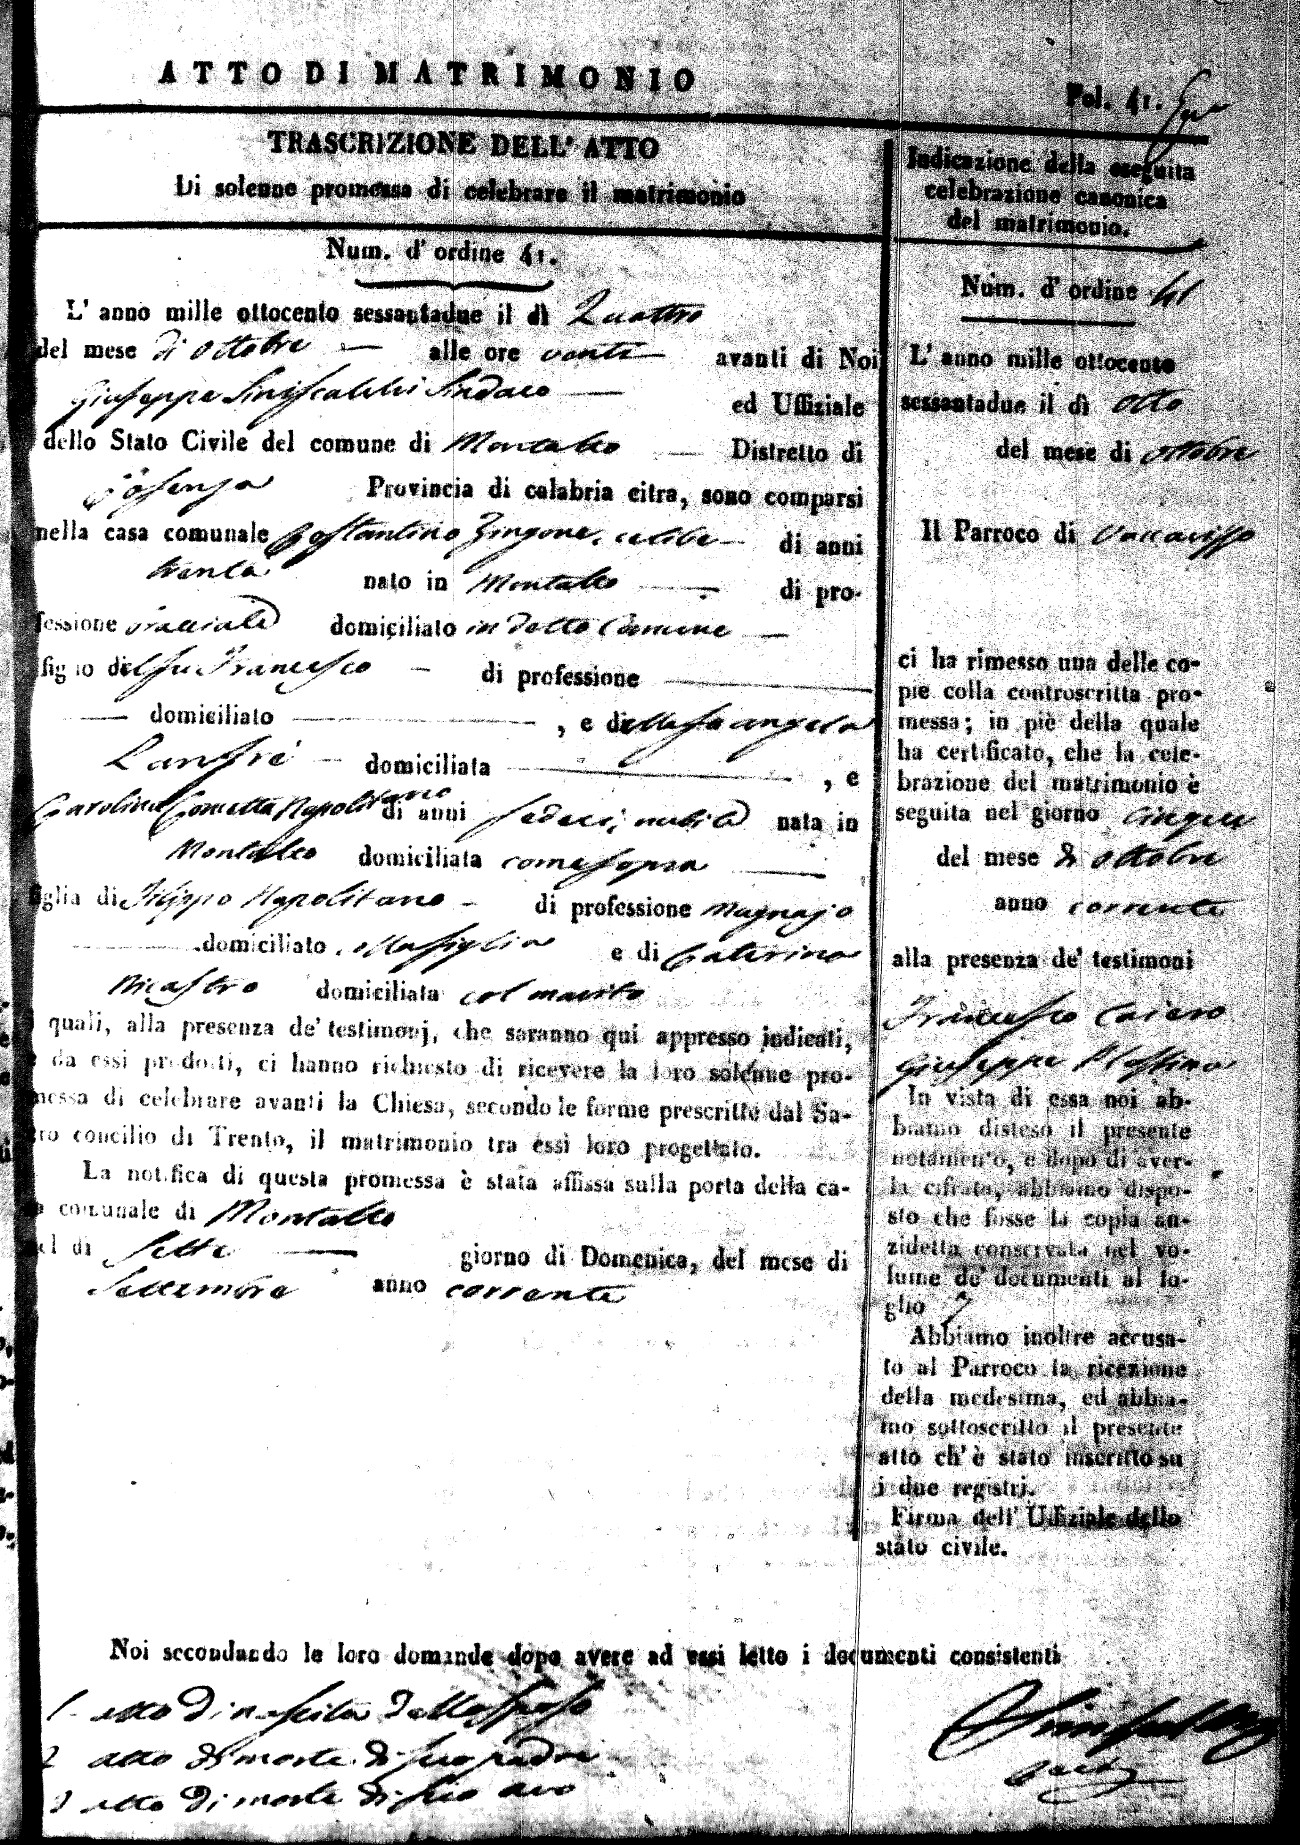 ATTO DI MATRIMONIO
Fol. 41.
TRASCRIZIONE DELL' ATTO
Di solenne promessa di celebrare il matrimonio
Num. d' ordine 41.
L' anno mille ottocento sessantadue il dì Quattro
del mese di ottobre alle ore venti avanti di Noi
Giuseppe Siniscalchi Sindaco ed Uffiziale
dello Stato Civile del comune di Montalto Distretto di
Cosenza Provincia di calabria citra, sono comparsi
nella casa comunale Costantino Zingone, celibe di anni
trenta nato in Montalto di pro-
fessione bracciale domiciliato in detto Comune
figlio del fu Francesco di professione
domiciliato , e della fu Angela
Lanfré domiciliata , e
Carolina Cometta Napolitano di anni sedeci, nubile nata in
Montalto domiciliata come sopra
figlia di Filippo Napolitano di professione Magnajo
domiciliato e di Caterina
Nicastro domiciliata col marito
quali, alla presenza de' testimonj, che saranno qui appresso indicati,
e da essi prodotti, ci hanno richiesto di ricevere la loro solenne pro-
messa di celebrare avanti la Chiesa, secondo le forme prescritte dal Sa-
cro concilio di Trento, il matrimonio tra essi loro progettato.
La notifica di questa promessa è stata affissa sulla porta della ca-
sa comunale di Montalto
nel di Sette giorno di Domenica, del mese di
Settembre anno corrente
Indicazione della eseguita
celebrazione canonica
del matrimonio.
Num. d' ordine 41
L' anno mille ottocento
sessantadue il dì otto
del mese di ottobre
Il Parroco di Vaccarizzo
ci ha rimesso una delle co-
pie colla controscritta pro-
messa; in piè della quale
ha certificato, che la cele-
brazione del matrimonio è
seguita nel giorno cinque
del mese di ottobre
anno corrente
alla presenza de' testimoni
Francesco Cairo
Giuseppe
In vista di essa noi ab-
biamo disteso il presente
notamento, e dopo di aver-
la cifrata, abbiamo dispo-
sto che fosse la copia an-
zidetta conservata nel vo-
lume de' documenti al fo-
glio 7
Abbiamo inoltre accusa-
to al Parroco la ricezione
della medesima, ed abbia-
mo sottoscritto il presente
atto ch' è stato inscritto su
i due registri.
Firma dell' Uffiziale dello
stato civile.
Noi secondando le loro domande dopo avere ad essi letto i documenti consistenti
1 atto di nascita dello sposo
2 atto di morte di suo padre
3 atto di morte di suo avo